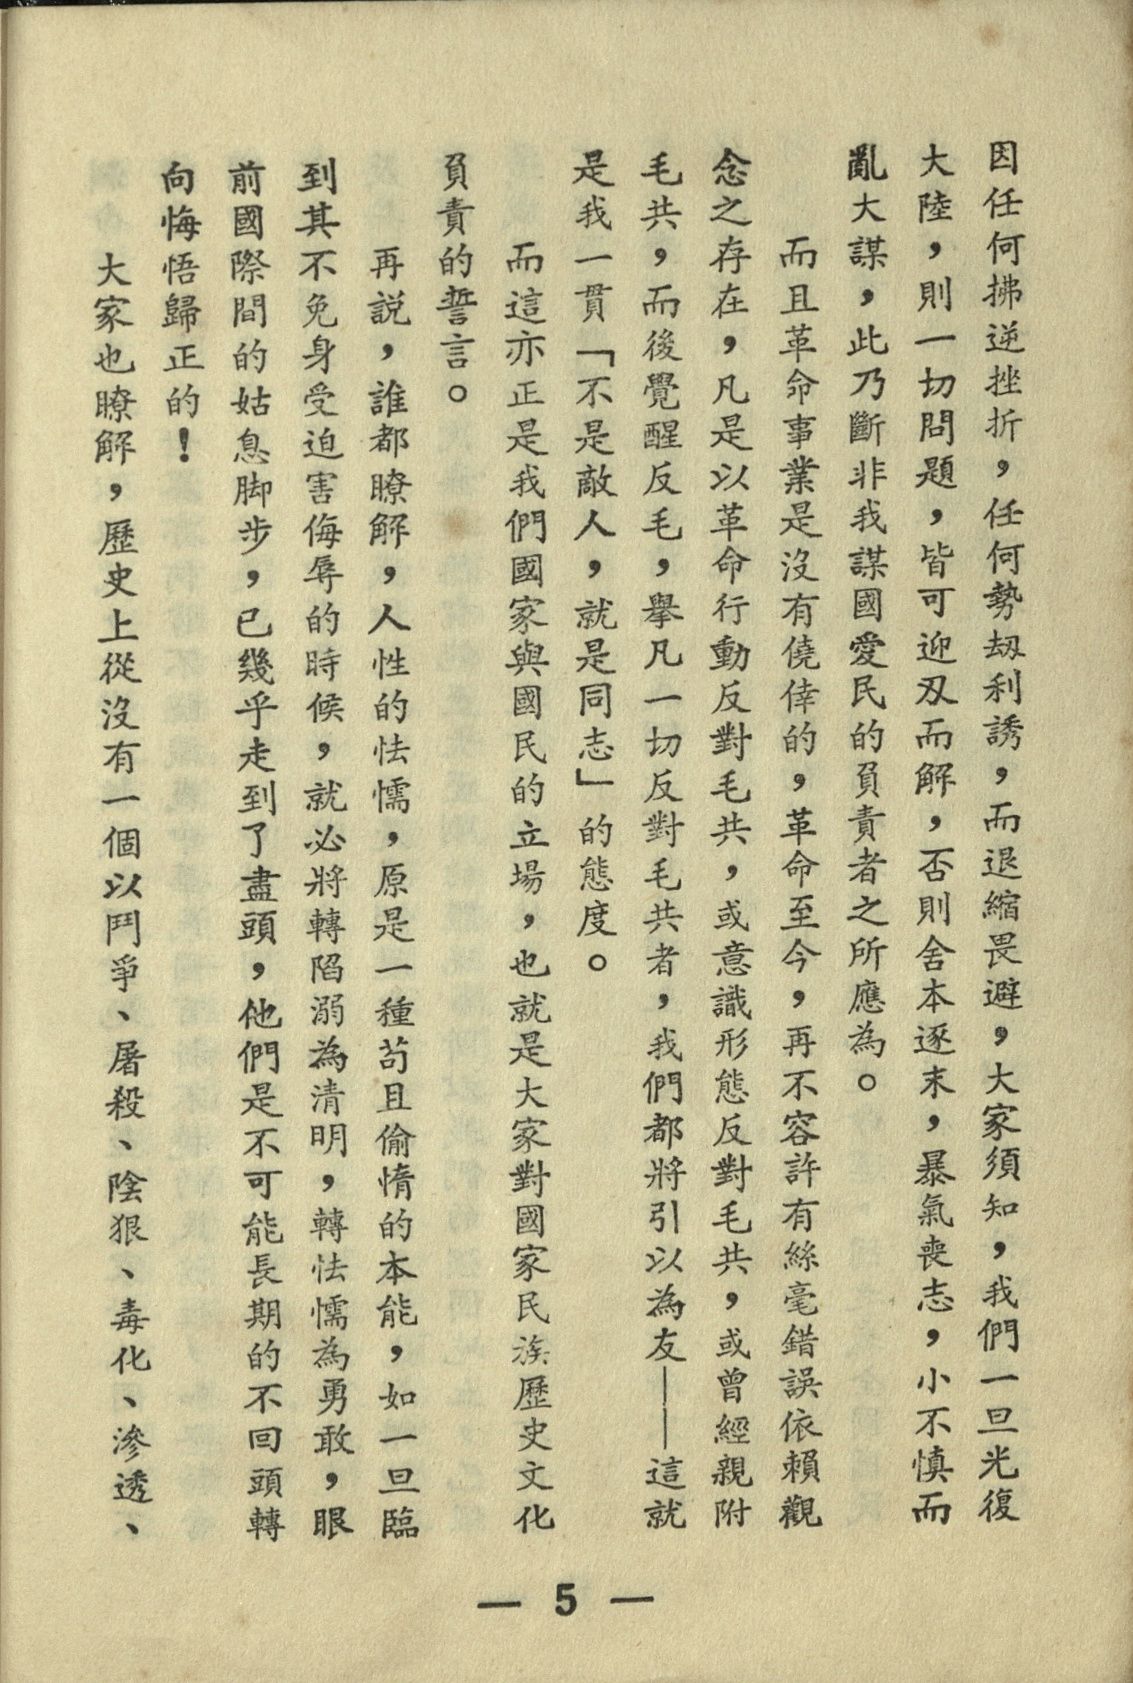 因任何拂逆挫折，任何勢刼利誘，而退縮畏避，大家須知，我們一旦光復
大陸，則一切問題，皆可迎刄而解，否則舍本逐末，暴氣喪志，小不慎而
亂大謀，此乃斷非我謀國愛民的負責者之所應為。
而且革命事業是沒有僥倖的，革命至今，再不容許有絲毫錯誤依賴觀
念之存在，凡是以革命行動反對毛共，或意識形態反對毛共，或曾經親附
毛共，而後覺醒反毛，舉凡一切反對毛共者，我們都將引以為友——這就
是我一貫「不是敵人，就是同志」的態度。
而這亦正是我們國家與國民的立場，也就是大家對國家民族歷史文化
負責的誓言。
再說，誰都瞭解，人性的怯懦，原是一種苟且偷惰的本能，如一旦臨
到其不免身受迫害侮辱的時候，就必將轉陷溺為清明，轉怯懦為勇敢，眼
前國際間的姑息脚步，已幾乎走到了盡頭，他們是不可能長期的不回頭轉
向悔悟歸正的！
大家也瞭解，歷史上從沒有一個以鬥爭、屠殺、陰狠、毒化、滲透、
— 5 —